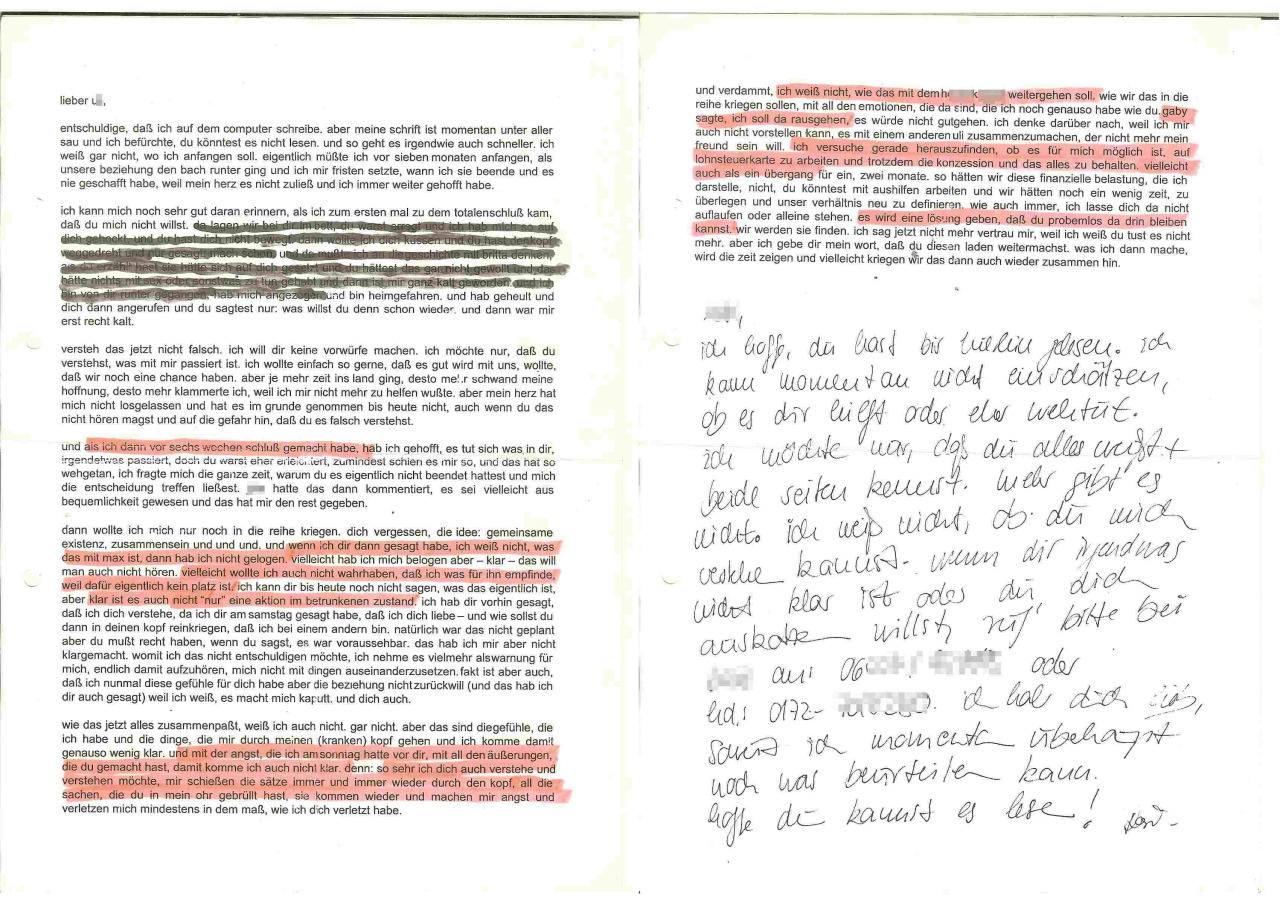 lieber u
entschuldige, daß ich auf dem computer schreibe. aber meine schrift ist momentan unter aller
sau und ich befürchte, du könntest es nicht lesen. und so geht es irgendwie auch schneller. ich
weiß gar nicht, wo ich anfangen soll. eigentlich müßte ich vor sieben monaten anfangen, als
unsere beziehung den bach runter ging und ich mir fristen setzte, wann ich sie beende und es
nie geschafft habe, weil mein herz es nicht zuließ und ich immer weiter gehofft habe.
ich kann mich noch sehr gut daran erinnern, als ich zum ersten mal zu dem totalenschluß kam,
daß du mich nicht willst.
und bin heimgefahren. und hab geheult und
dich dann angerufen und du sagtest nur: was willst du denn schon wieder. und dann war mir
erst recht kalt.
versteh das jetzt nicht falsch. ich will dir keine vorwürfe machen. ich möchte nur, daß du
verstehst, was mit mir passiert ist. ich wollte einfach so gerne, daß es gut wird mit uns, wollte,
daß wir noch eine chance haben. aber je mehr zeit ins land ging, desto mehr schwand meine
hoffnung, desto mehr klammerte ich, weil ich mir nicht mehr zu helfen wußte. aber mein herz hat
mich nicht losgelassen und hat es im grunde genommen bis heute nicht, auch wenn du das
nicht hören magst und auf die gefahr hin, daß du es falsch verstehst.
und als ich dann vor sechs wochen schluß gemacht habe, hab ich gehofft, es tut sich was in dir,
irgendetwas passiert, doch du warst eher erleichtert, zumindest schien es mir so, und das hat so
wehgetan, ich fragte mich die ganze zeit, warum du es eigentlich nicht beendet hattest und mich
die entscheidung treffen ließest. hatte das dann kommentiert, es sei vielleicht aus
bequemlichkeit gewesen und das hat mir den rest gegeben.
dann wollte ich mich nur noch in die reihe kriegen. dich vergessen, die idee: gemeinsame
existenz, zusammensein und und und. und wenn ich dir dann gesagt habe, ich weiß nicht, was
das mit max ist, dann hab ich nicht gelogen. vielleicht hab ich mich belogen aber – klar – das will
man auch nicht hören. vielleicht wollte ich auch nicht wahrhaben, daß ich was für ihn empfinde,
weil dafür eigentlich kein platz ist. ich kann dir bis heute noch nicht sagen, was das eigentlich ist,
aber klar ist es auch nicht "nur" eine aktion im betrunkenen zustand. ich hab dir vorhin gesagt,
daß ich dich verstehe, da ich dir am samstag gesagt habe, daß ich dich liebe – und wie sollst du
dann in deinen kopf reinkriegen, daß ich bei einem andern bin. natürlich war das nicht geplant
aber du mußt recht haben, wenn du sagst, es war voraussehbar. das hab ich mir aber nicht
klargemacht. womit ich das nicht entschuldigen möchte, ich nehme es vielmehr alswarnung für
mich, endlich damit aufzuhören, mich nicht mit dingen auseinanderzusetzen. fakt ist aber auch,
daß ich nunmal diese gefühle für dich habe aber die beziehung nicht zurückwill (und das hab ich
dir auch gesagt) weil ich weiß, es macht mich kaputt. und dich auch.
wie das jetzt alles zusammenpaßt, weiß ich auch nicht. gar nicht. aber das sind diegefühle, die
ich habe und die dinge, die mir durch meinen (kranken) kopf gehen und ich komme damit
genauso wenig klar. und mit der angst, die ich am sonntag hatte vor dir, mit all den äußerungen,
die du gemacht hast, damit komme ich auch nicht klar. denn: so sehr ich dich auch verstehe und
verstehen möchte, mir schießen die sätze immer und immer wieder durch den kopf, all die
sachen, die du in mein ohr gebrüllt hast, sie kommen wieder und machen mir angst und
verletzen mich mindestens in dem maß, wie ich dich verletzt habe.
und verdammt, ich weiß nicht, wie das mit dem h k weitergehen soll, wie wir das in die
reihe kriegen sollen, mit all den emotionen, die da sind, die ich noch genauso habe wie du. gaby
sagte, ich soll da rausgehen, es würde nicht gutgehen. ich denke darüber nach, weil ich mir
auch nicht vorstellen kann, es mit einem anderen uli zusammenzumachen, der nicht mehr mein
freund sein will. ich versuche gerade herauszufinden, ob es für mich möglich ist, auf
lohnsteuerkarte zu arbeiten und trotzdem die konzession und das alles zu behalten. vielleicht
auch als ein übergang für ein, zwei monate. so hätten wir diese finanzielle belastung, die ich
darstelle, nicht, du könntest mit aushilfen arbeiten und wir hätten noch ein wenig zeit, zu
überlegen und unser verhältnis neu zu definieren. wie auch immer, ich lasse dich da nicht
auflaufen oder alleine stehen. es wird eine lösung geben, daß du probemlos da drin bleiben
kannst. wir werden sie finden. ich sag jetzt nicht mehr vertrau mir, weil ich weiß du tust es nicht
mehr. aber ich gebe dir mein wort, daß du diesen laden weitermachst. was ich dann mache,
wird die zeit zeigen und vielleicht kriegen wir das dann auch wieder zusammen hin.
ich hoffe, du hast bis hierhin gelesen. ich
kann momentan nicht einschätzen,
ob es dir hilft oder eher wehtut.
ich möchte nur, daß du alles weißt +
beide seiten kennst. mehr gibt es
nicht. ich weiß nicht, ob du mich
verstehen kannst. wenn dir irgendwas
nicht klar ist oder du dich
auskotzen willst, ruf' bitte bei
an: 06 oder
0172- ich hab dich lieb,
soweit ich momentan überhaupt
noch was beurteilen kann.
hoffe du kannst es lesen!